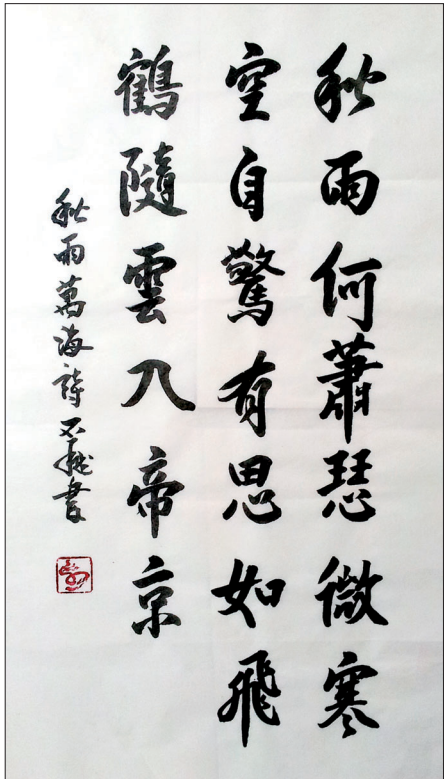 秋雨何蕭瑟微寒
空自驚有思如飛
鶴隨雲入帝京
秋雨萬海詩不㧱書